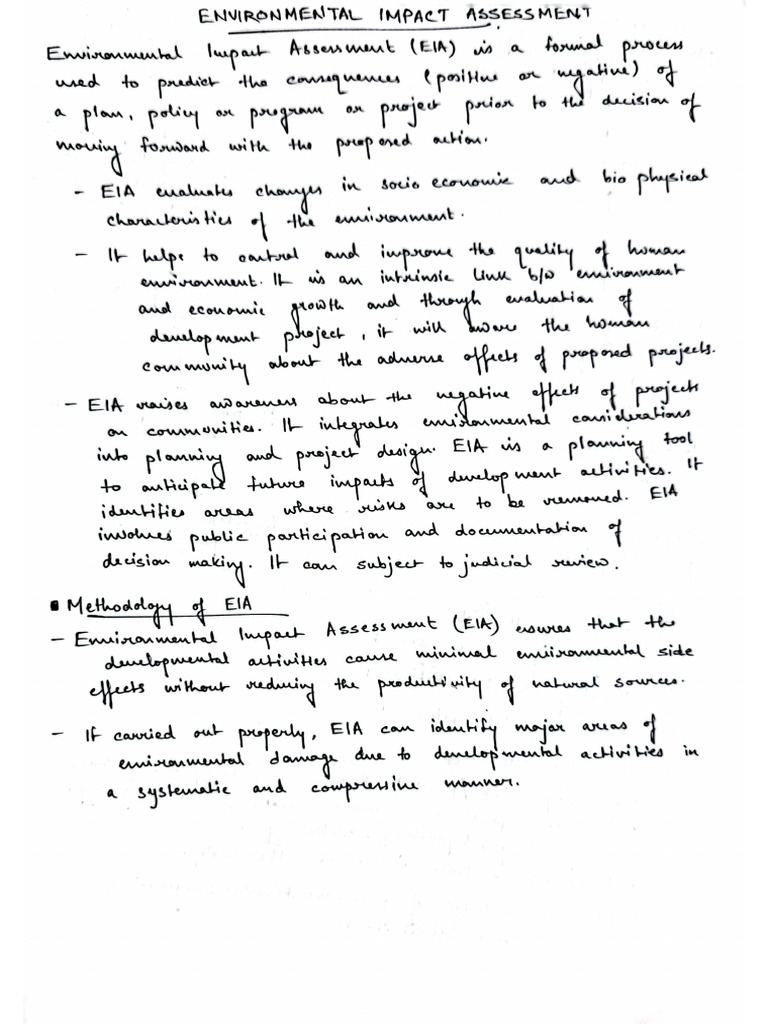 ENVIRONMENTAL IMPACT ASSESSMENT
Environmental Impact Assessment (EIA) is a formal process
used to predict the consequences (positive or negative) of
a plan, policy or program or project prior to the decision of
moving forward with the proposed action.
- EIA evaluates changes in socio economic and bio physical
characteristics of the environment.
- It helps to control and improve the quality of human
environment. It is an intrinsic link b/w environment
and economic growth and through evaluation of
development project, it will aware the human
community about the adverse effects of proposed projects.
- EIA raises awareness about the negative effects of projects
on communities. It integrates environmental considerations
into planning and project design. EIA is a planning tool
to anticipate future impacts of development activities. It
identities areas where risks are to be removed. EIA
involves public participation and documentation of
decision making. It can subject to judicial review.
▪ Methodology of EIA
- Environmental Impact Assessment (EIA) ensures that the
developmental activities cause minimal environmental side
effects without reducing the productivity of natural sources.
- If carried out properly, EIA can identify major areas of
environmental damage due to developmental activities in
a systematic and compressive manner.